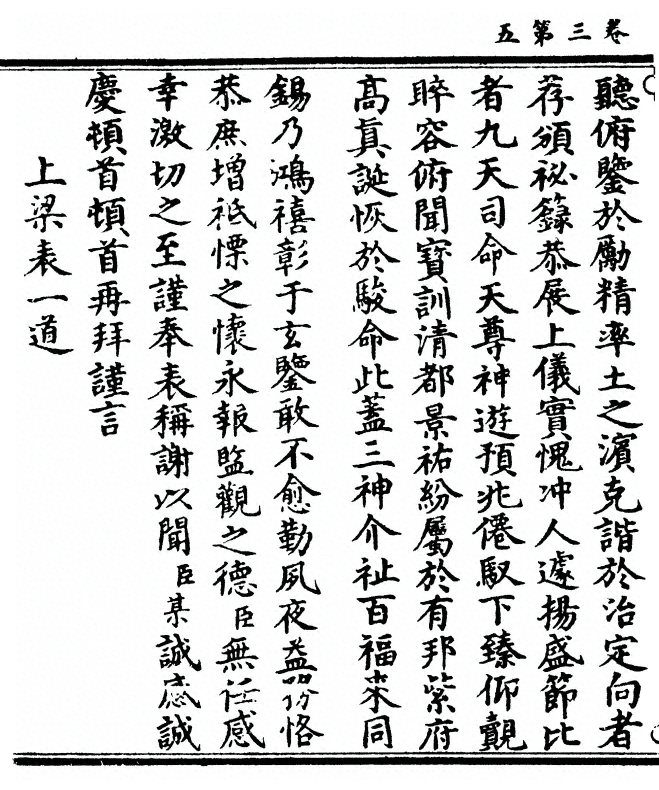 卷三第五
聽俯鑒於勵精率土之濱克諧於治定向者
荐頒祕籙恭展上儀實愧冲人遽揚盛節比
者九天司命天尊神遊預兆僊馭下臻仰覿
睟容俯聞寶訓清都景祐紛屬於有邦紫府
高真誕恢於駿命此蓋三神介祉百福來同
錫乃鴻禧彰于玄鑒敢不愈勤夙夜益務恪
恭庶增祗慄之懷永報監觀之德臣無任感
幸激切之至謹奉表稱謝以聞臣某誠感誠
慶頓首頓首再拜謹言
上梁表一道